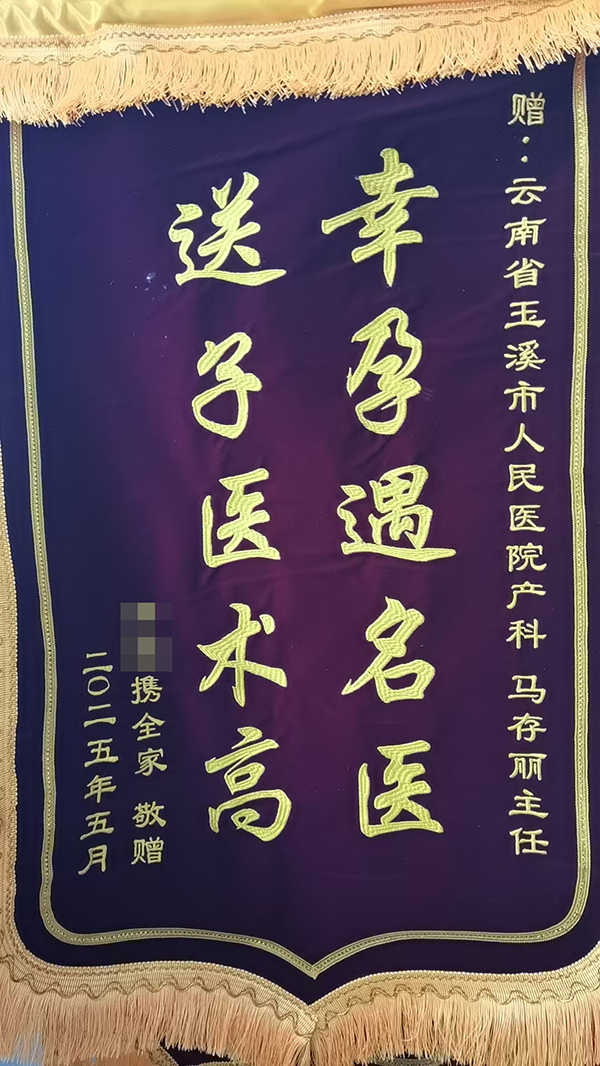 赠：云南省玉溪市人民医院产科 马存丽主任
幸孕遇名医
送子医术高
携全家 敬赠
二〇二五年五月